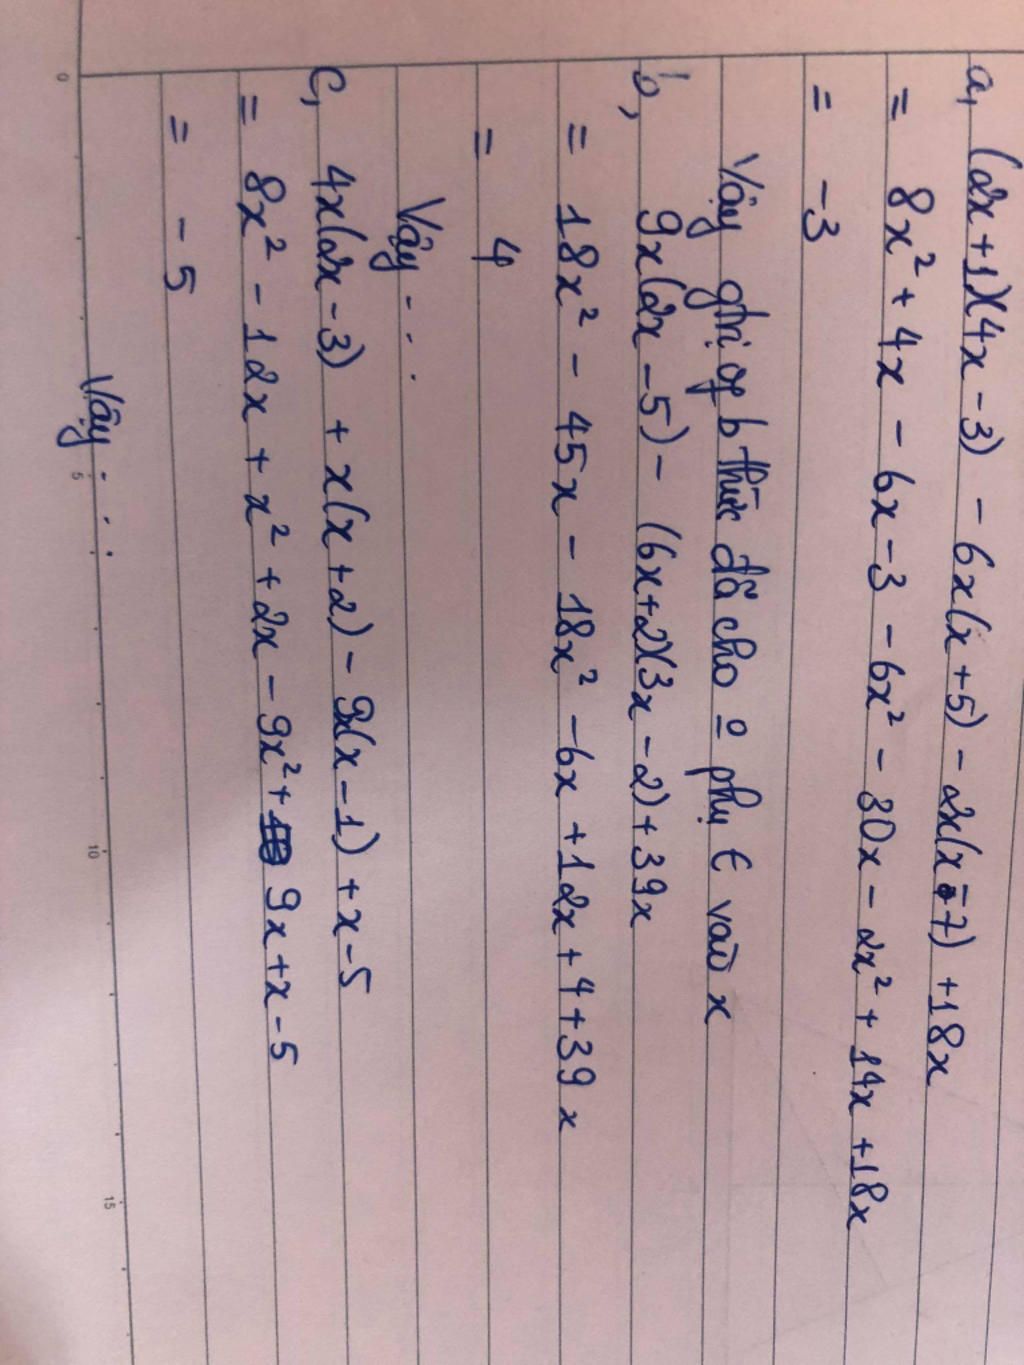 a, (2x+1)(4x-3) - 6x(x+5) - 2x(x-7) +18x
= 8x² + 4x - 6x - 3 - 6x² - 30x - 2x² + 14x +18x
= -3
Vậy gtrị of b thức đã cho o phụ t vào x
b, 9x(2x-5) - (6x+2)(3x-2) +39x
= 18x² - 45x - 18x² - 6x + 12x + 4 + 39x
= 4
Vậy ...
c, 4x(2x-3) + x(x+2) - 9x(x-1) + x-5
= 8x² - 12x + x² + 2x - 9x² + 9x + x - 5
= -5
Vậy ...
0 5 10 15